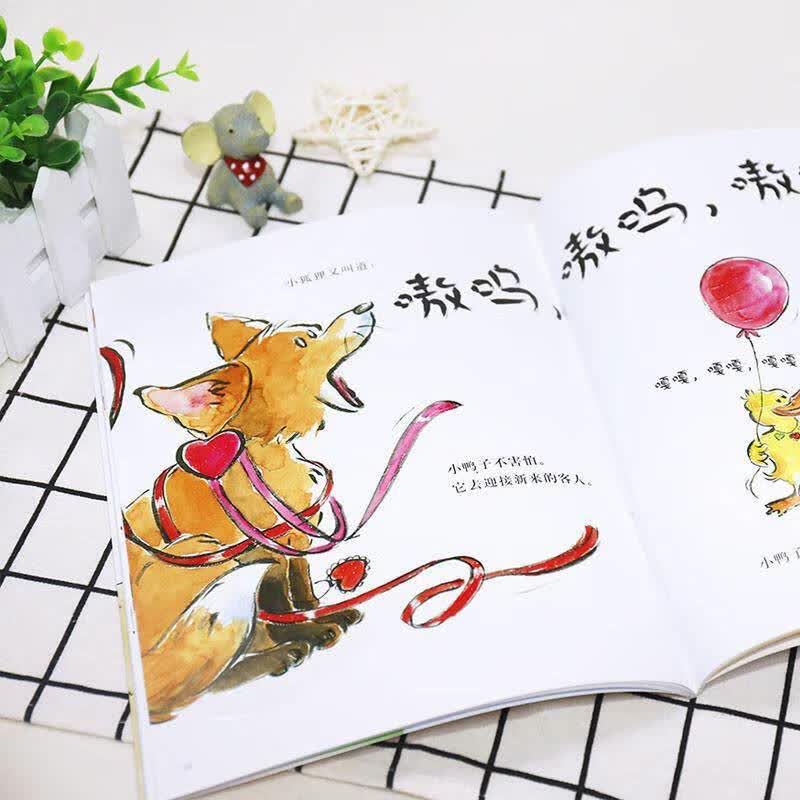 小狐狸又叫道：
嗷呜，
小鸭子不害怕。
它去迎接新来的客人。
嗷呜，嗷
嘎嘎，嘎嘎，嘎嘎
小鸭